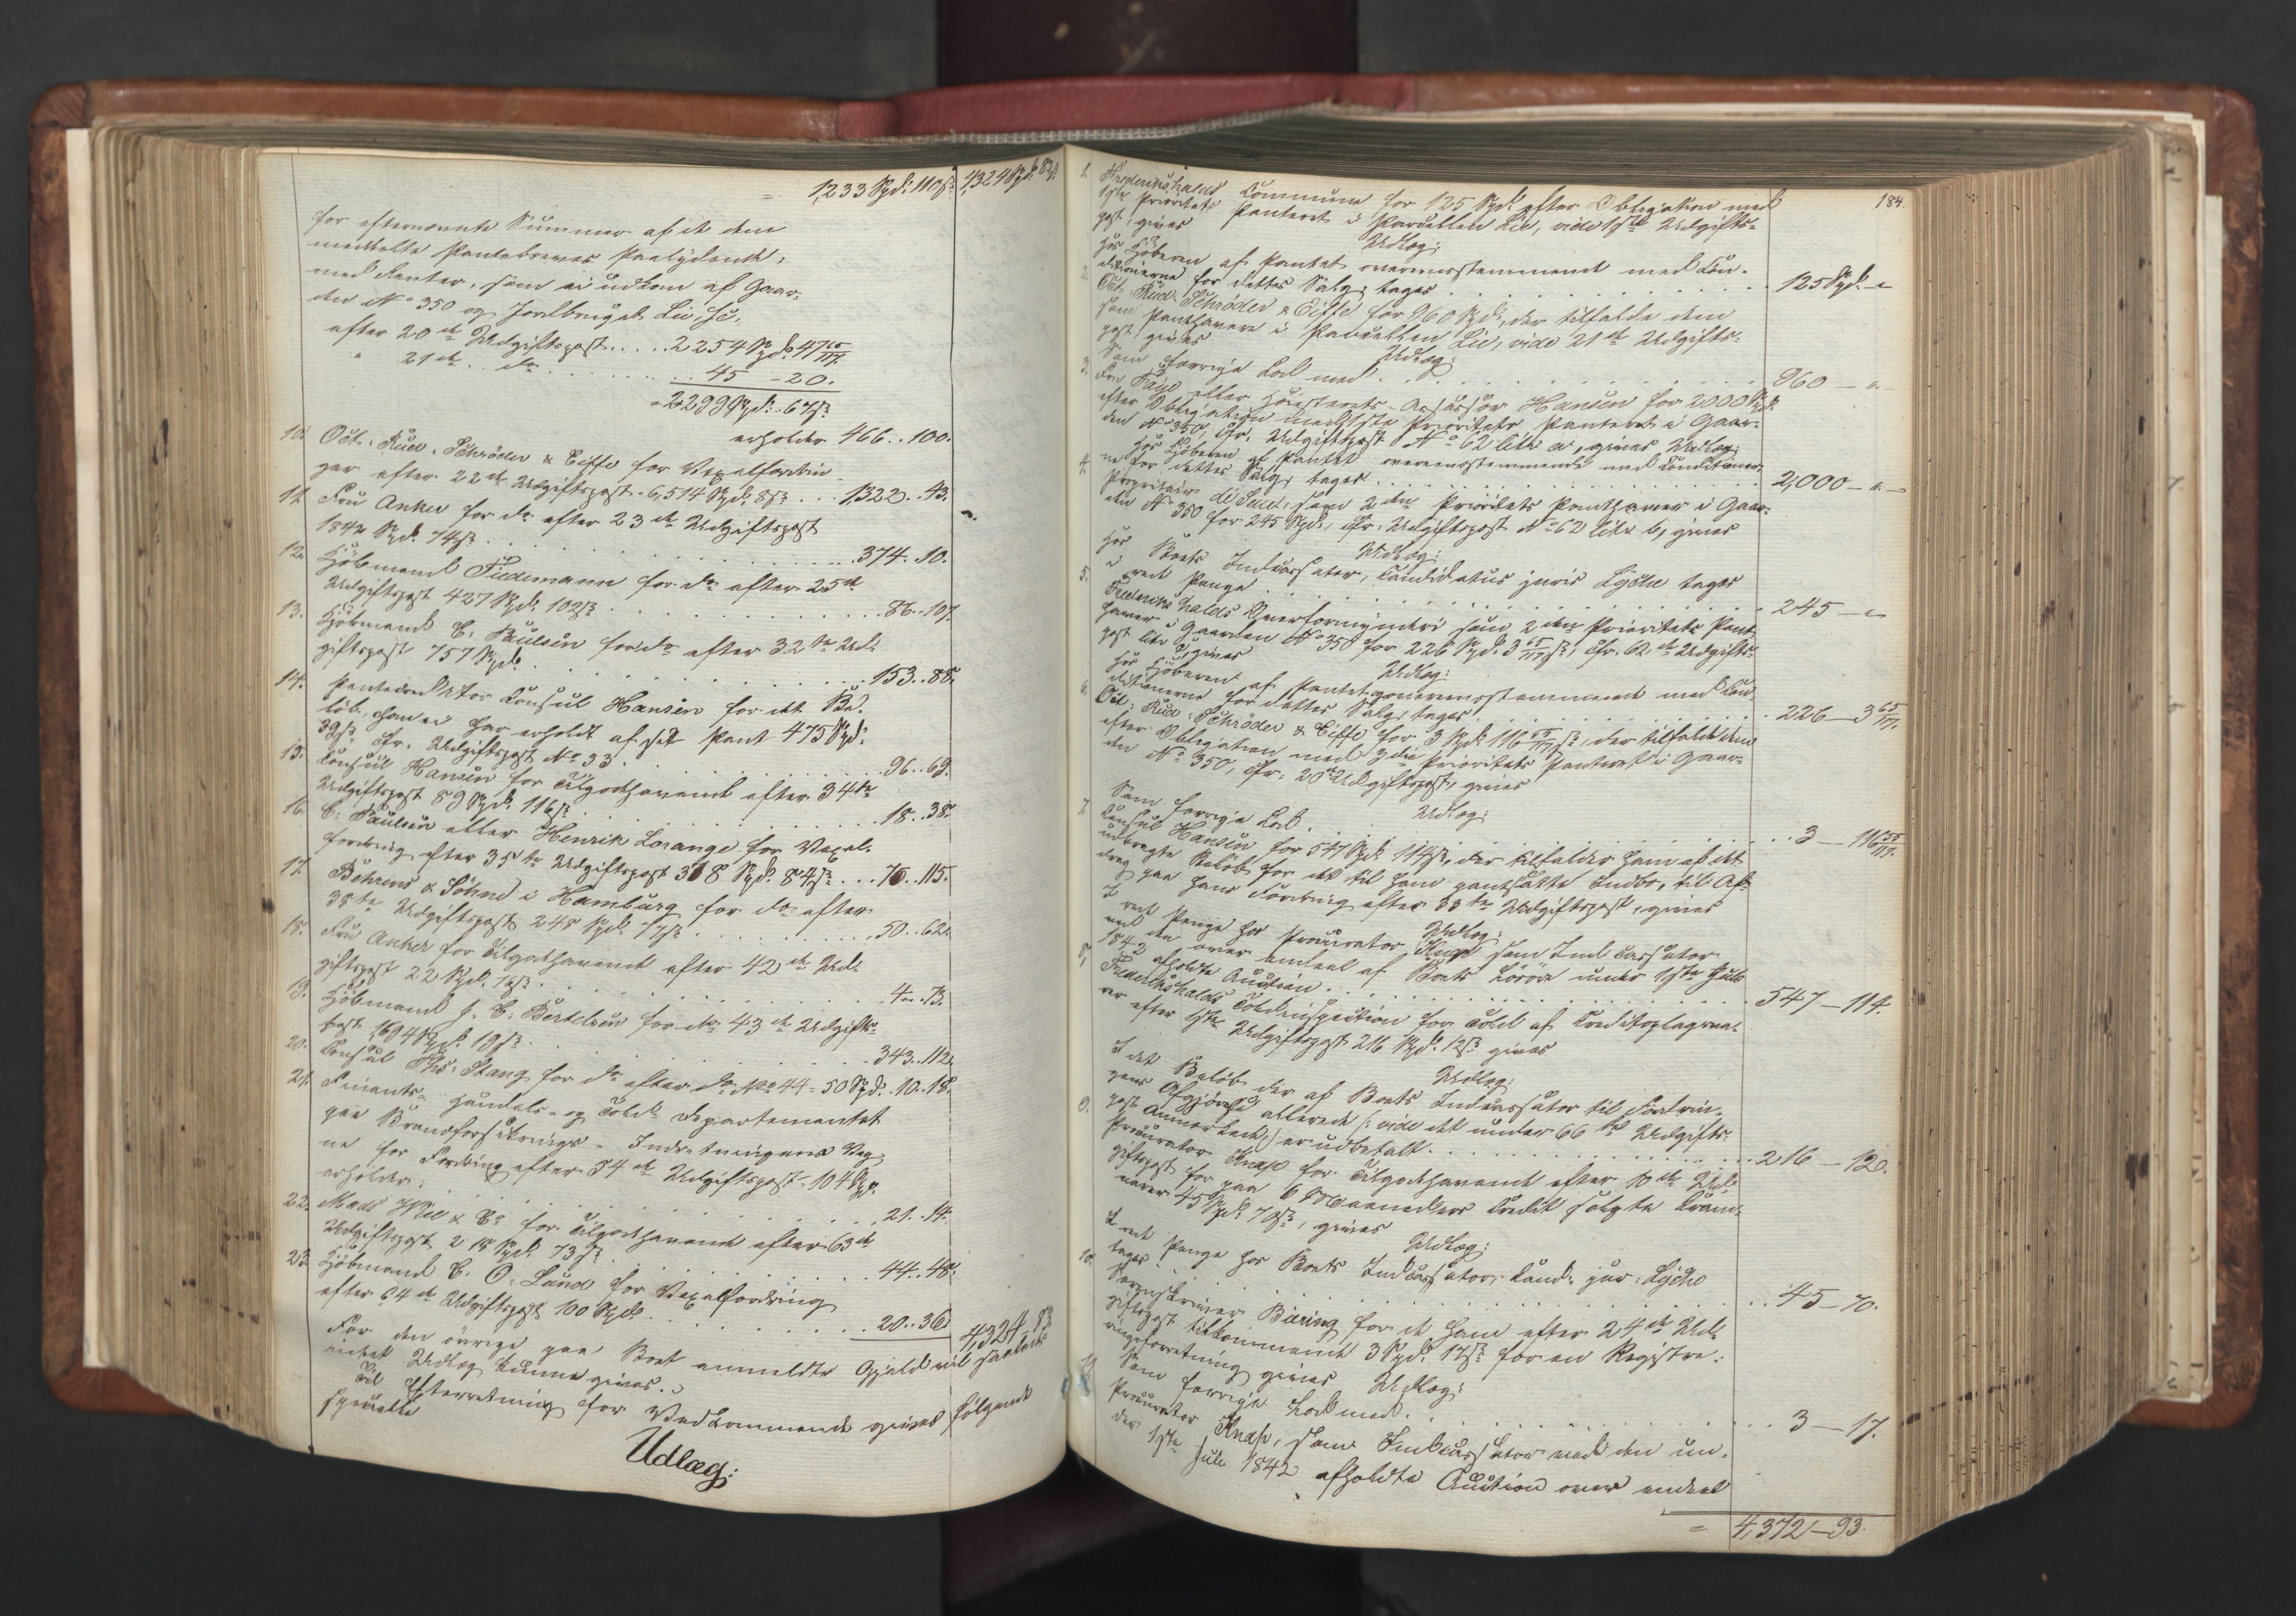 = 1,233 Spd: 110 ß 4,324 Spd: 83 ß
for efternævnte Summer af de dem
meddelte Pantebreves Paalydende,
med Renter, som ei udkom af Gaar-
den No 350 og Jordbruget Lie, sc,
efter 20de Udgiftspost ..... 2254 Spd: 47 65/117
" 21de .. do ......... 45 - 20.
= 2299 Spd: 67 ß
erholder 466 .. 100.
10. Oct: Rud: Schröder & Eiffe for Vexelfordrin-
ger efter 22de Udgiftspost - 6,514 Spd: 8 ß ... 1322 .. 43.
11. Fru Anker for do efter 23de Udgiftspost
1842 Spd: 74 ß ......... 374. 10.
12. Kjöbmand Tiedemann for do efter 25de
Udgiftspost 427 Spd: 102 ß ......... 86 .. 107.
13. Kjöbmand C: Paulsen for do efter 32te Ud-
giftspost 757 Spd: ......... 153 .. 88.
14. Pantecreditor Consul Hansen for det Be-
löb, han ei har erholdt af sit Pant 475 Spd:
39 ß cfr. Udgiftspost No 33 ......... 96 .. 69.
15. Consul Hansen for Tilgodehavende efter 34te
Udgiftspost 89 Spd: 116 ß ......... 18 .. 38.
16. C: Paulsen eller Henrik Lorange for Vexel-
fordring efter 35te Udgiftspost 348 Spd: 84 ß ... 70 .. 115.
17. Behrens & Söhne i Hamburg for do efter
38te Udgiftspost 248 Spd: 77 ß ......... 50 .. 62.
18. Fru Anker for Tilgodehavende efter 42de Ud-
giftspost 22 Spd: 76 ß ......... 4 .. 73.
19. Kjöbmand J: C: Bertelsen for do 43de Udgifts-
post 1694 Spd: 19 ß ......... 343 .. 112.
20. Consul Ths: Stang for do efter do No 44 - 50 Spd: . 10 .. 18.
21. Finants- Handels- og Told-Departementet
paa Brandforsikrings-Indretningens Veg-
ne for Fordring efter 54de Udgiftspost - 104 Spd:
erholder ......... 21 .. 14.
22. Mads Wiel & Co for Tilgodehavende efter 63de
Udgiftspost 218 Spd: 73 ß ......... 44 .. 48.
23. Kjöbmand C. O. Lund for Vexelfordring
efter 64de Udgiftspost 100 Spd: ......... 20 .. 36.
4,324 . 83
For den övrige paa Boet anmeldte Gjæld vil saaledes
intet Udlæg kunne gives.
Til Efterretning for Vedkommende gives følgende
specielle
Udlæg:
184.
1. Frederikshalds Commune for 125 Spd: efter Obligation med
1ste Prioritets Panteret i Parcellen Lie, vide 19de Udgifts-
post, gives
Udlæg:
hos Kjöberen af Pantet overensstemmende med Con-
ditionerne for dettes Salg, tages ......... 125 Spd: - "
2. Oct: Rud: Schröder & Eiffe for 960 Spd:, der tilfalde dem
som Panthavere i Parcellen Lie, vide 21de Udgifts-
post, gives
Udlæg:
Som forrige Lod med ......... 960 - "
3. Fru Faye eller Höiesterets-Assessor Hansen for 2000 Spd:
efter Obligation med 1ste Prioritets Panteret i Gaar-
den No 350, cfr. Udgiftspost No 62 litr a, gives Udlæg:
hos Kjöberen af Pantet overensstemmende med Conditioner-
ne for dettes Salg, tages ......... 2,000 - " -
4. Proprietair de Sue, som 2den Prioritets Panthaver i Gaar-
den No 350 for 245 Spd:, cfr. Udgiftspost No 62 litr b, gives
Udlæg:
hos Boets Incassator, Candidatus juris Lyche tages
i rede Penge ......... 245 - "
5. Frederikshalds Overformynderi som 2den Prioritets Pant-
haver i Gaarden No 350 for 226 Spd: 3 65/117 ß, cfr. 62de Udgifts-
post litr c, gives
Udlæg:
hos Kjöberen af Pantet overensstemmende med Con-
ditionerne for dettes Salg, tages ......... 226 - 3 65/117.
6. Oct: Rud: Schröder & Eiffe for 3 Spd: 116 55/117 ß, der tilfalde dem
efter Obligation med 3die Prioritets Panteret i Gaar-
den No 350, cfr: 20de Udgiftspost, gives
Udlæg:
Som forrige Lod ......... 3 - 116 55/117.
7. Consul Hansen for 547 Spd: 114 ß, der tilfalder ham af det
udbragte Belöb for det til ham pantsatte Indbo, til Af-
drag paa hans Fordring efter 33te Udgiftspost, gives
Udlæg:
I rede Penge hos Procurator Knap som Incassator
ved den over endeel af Boets Lösöre under 1ste Juli
1842 afholdte Auction ......... 547 - 114.
8. Frederikshalds Toldinspection for Told af Creditoplagsva-
rer efter 1ste Udgiftspost 216 Spd: 12 ß gives
Udlæg:
I det Belöb der af Boets Incassator til Fordrin-
gens Afgjörelse allerede (: vide det under 66te Udgifts-
post Anmærkede :) er udbetalt ......... 216 - 12.
9. Procurator Knap for Tilgodehavende efter 10de Ud-
giftspost for paa 6 Maaneders Credit solgte Kram-
varer 45 Spd: 70 ß, gives
Udlæg:
I rede Penge hos Boets Incassator, Cand: jur: Lyche
tages ......... 45 - 70.
10. Sorenskriver Biering for et ham efter 24de Ud-
giftspost tilkommende 3 Spd: 17 ß for en Registre-
ringsforretning gives Udlæg:
Som forrige Lod med ......... 3 - 17.
11. Procurator Knap, som Incassator ved den un-
der 1ste Juli 1842 afholdte Auction over endeel
= 4,372 - 93.